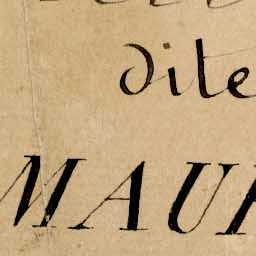 dite
MAU